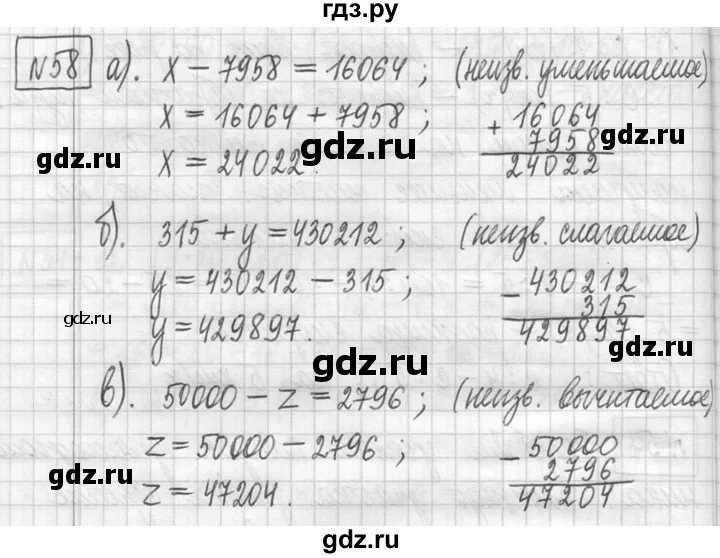 гдз.ру
№58 а). x − 7958 = 16064 ; (неизв. уменьшаемое)
x = 16064 + 7958 ;
x = 24022.
+ 16064
7958
24022
gdz.ru
gdz.ru
gdz.ru
б). 315 + y = 430212 ; (неизв. слагаемое)
y = 430212 − 315 ;
y = 429897.
− 430212
315
429897
gdz.ru
gdz.ru
gdz.ru
в). 50000 − z = 2796 ; (неизв. вычитаемое)
z = 50000 − 2796 ;
z = 47204.
− 50000
2796
47204
gdz.ru
gdz.ru
gdz.ru